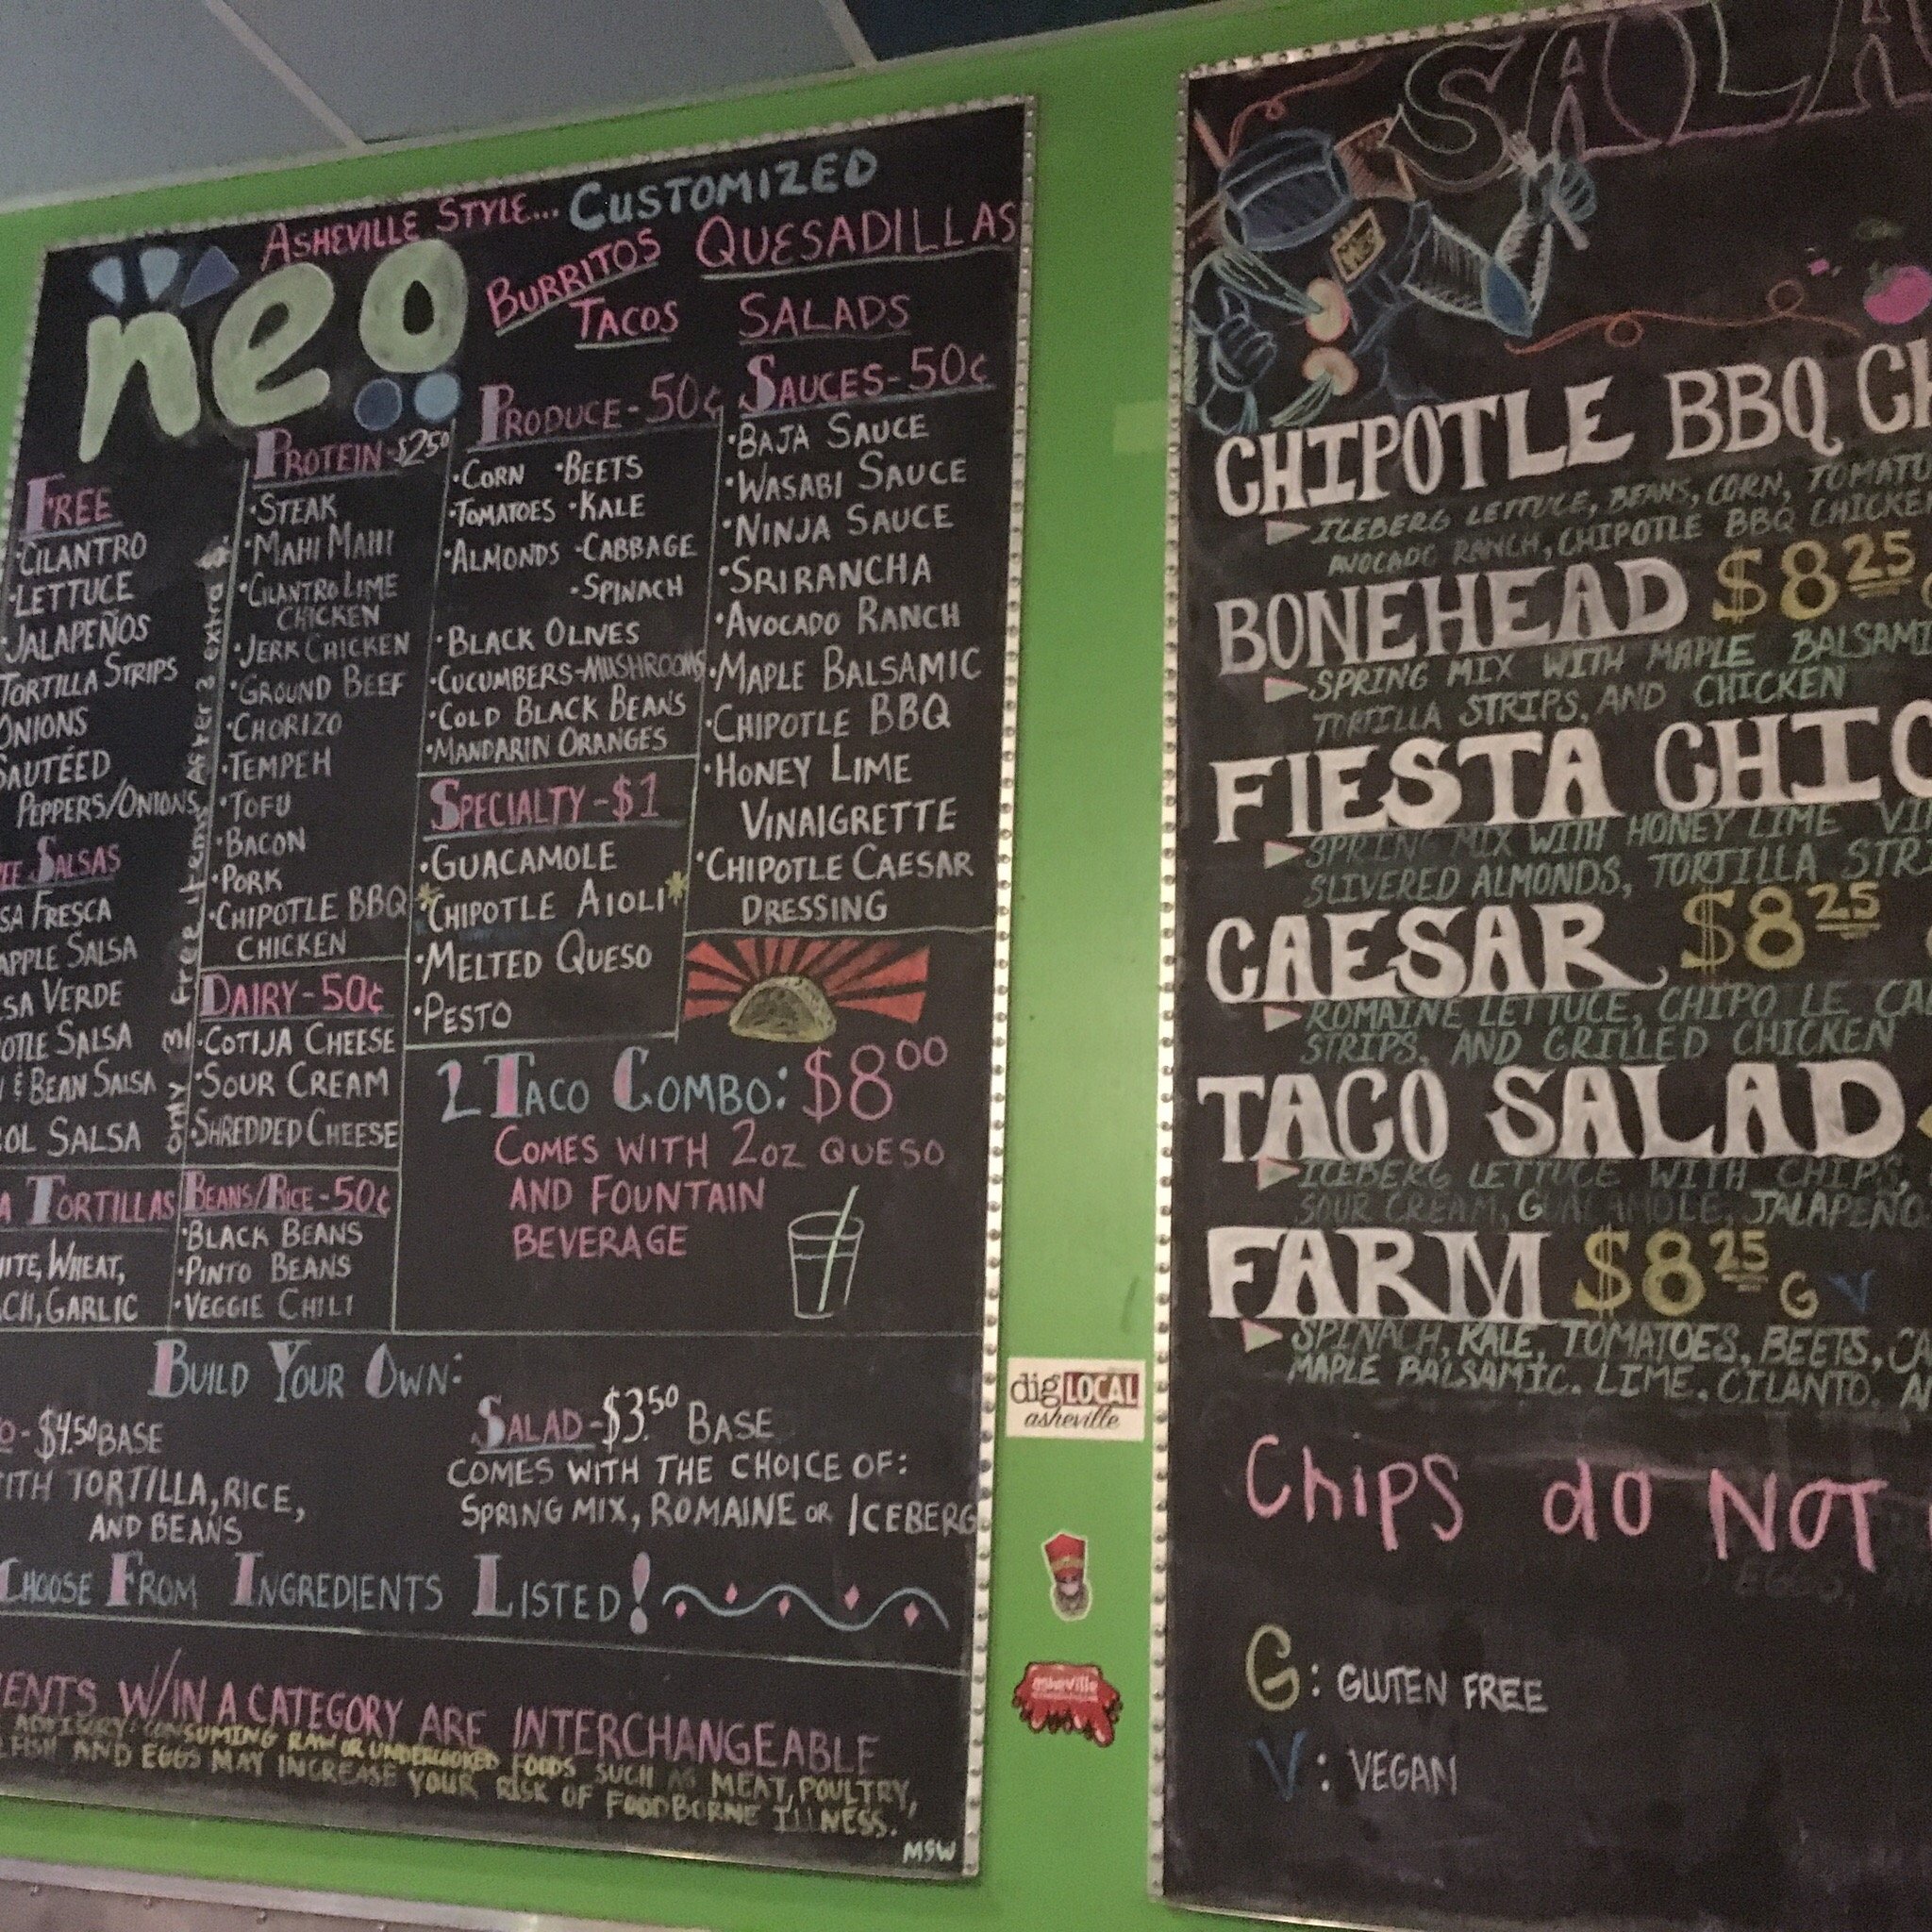 ASHEVILLE STYLE... CUSTOMIZED
neo
BURRITOS QUESADILLAS
TACOS SALADS
FREE
·CILANTRO
·LETTUCE
·JALAPEÑOS
TORTILLA STRIPS
ONIONS
SAUTÉED
PEPPERS/ONIONS
SALSAS
FRESCA
SALSA
VERDE
SALSA
& BEAN SALSA
SALSA
only 3 free items After 3 extra $
TORTILLAS
WHEAT,
GARLIC
PROTEIN-$2.50
·STEAK
·MAHI MAHI
·CILANTRO LIME
CHICKEN
·JERK CHICKEN
·GROUND BEEF
·CHORIZO
·TEMPEH
·TOFU
·BACON
·PORK
·CHIPOTLE BBQ
CHICKEN
DAIRY-50¢
·COTIJA CHEESE
·SOUR CREAM
·SHREDDED CHEESE
BEANS/RICE-50¢
·BLACK BEANS
·PINTO BEANS
·VEGGIE CHILI
PRODUCE-50¢
·CORN ·BEETS
·TOMATOES ·KALE
·ALMONDS ·CABBAGE
·SPINACH
·BLACK OLIVES
·CUCUMBERS-MUSHROOMS
·COLD BLACK BEANS
·MANDARIN ORANGES
SPECIALTY-$1
·GUACAMOLE
*CHIPOTLE AIOLI*
·MELTED QUESO
·PESTO
SAUCES-50¢
·BAJA SAUCE
·WASABI SAUCE
·NINJA SAUCE
·SRIRANCHA
·AVOCADO RANCH
·MAPLE BALSAMIC
·CHIPOTLE BBQ
·HONEY LIME
VINAIGRETTE
·CHIPOTLE CAESAR
DRESSING
2 TACO COMBO: $8.00
COMES WITH 2OZ QUESO
AND FOUNTAIN
BEVERAGE
BUILD YOUR OWN:
- $4.50 BASE
TORTILLA, RICE,
AND BEANS
SALAD-$3.50 BASE
COMES WITH THE CHOICE OF:
SPRING MIX, ROMAINE OR ICEBERG
CHOOSE FROM INGREDIENTS LISTED!
W/IN A CATEGORY ARE INTERCHANGEABLE
ADVISORY: CONSUMING RAW OR UNDERCOOKED FOODS SUCH AS MEAT, POULTRY,
AND EGGS MAY INCREASE YOUR RISK OF FOODBORNE ILLNESS.
MSW
dig LOCAL
asheville
asheville
CHIPOTLE BBQ
ICEBERG LETTUCE, BEANS, CORN,
AVOCADO RANCH, CHIPOTLE BBQ
BONEHEAD $8.25
SPRING MIX WITH MAPLE
TORTILLA STRIPS, AND CHICKEN
FIESTA
SPRING MIX WITH HONEY LIME
SLIVERED ALMONDS, TORTILLA
CAESAR $8.25
ROMAINE LETTUCE,
STRIPS, AND GRILLED CHICKEN
TACO SALAD
ICEBERG LETTUCE WITH CHIPS,
SOUR CREAM, GUACAMOLE,
FARM $8.25 G V
SPINACH, KALE, TOMATOES, BEETS,
MAPLE BALSAMIC. LIME. CILANTO.
Chips do NOT
G: GLUTEN FREE
V: VEGAN